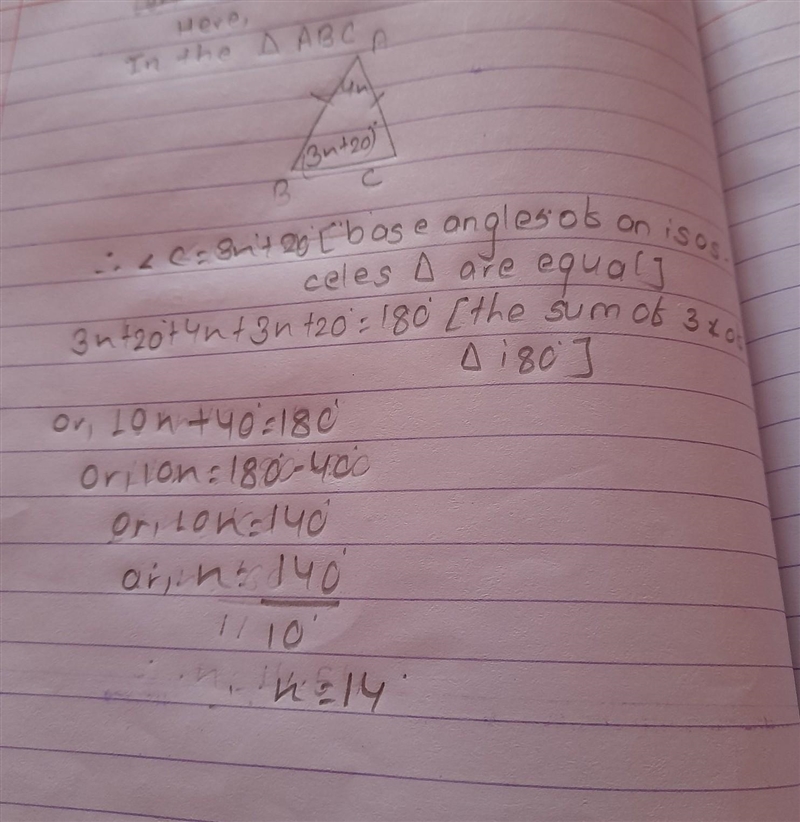 Here,
In the Δ ABC
A
4n
(3n+20°)
B
C
∴ ∠C = 3n+20° [base angles of an isos-
celes Δ are equal]
3n+20°+4n+3n+20°=180° [the sum of 3 ∠ of
Δ 180°]
or, 10n+40°=180°
or, 10n=180°-40°
or, 10n=140°
or, n=140°
10°
n=14°